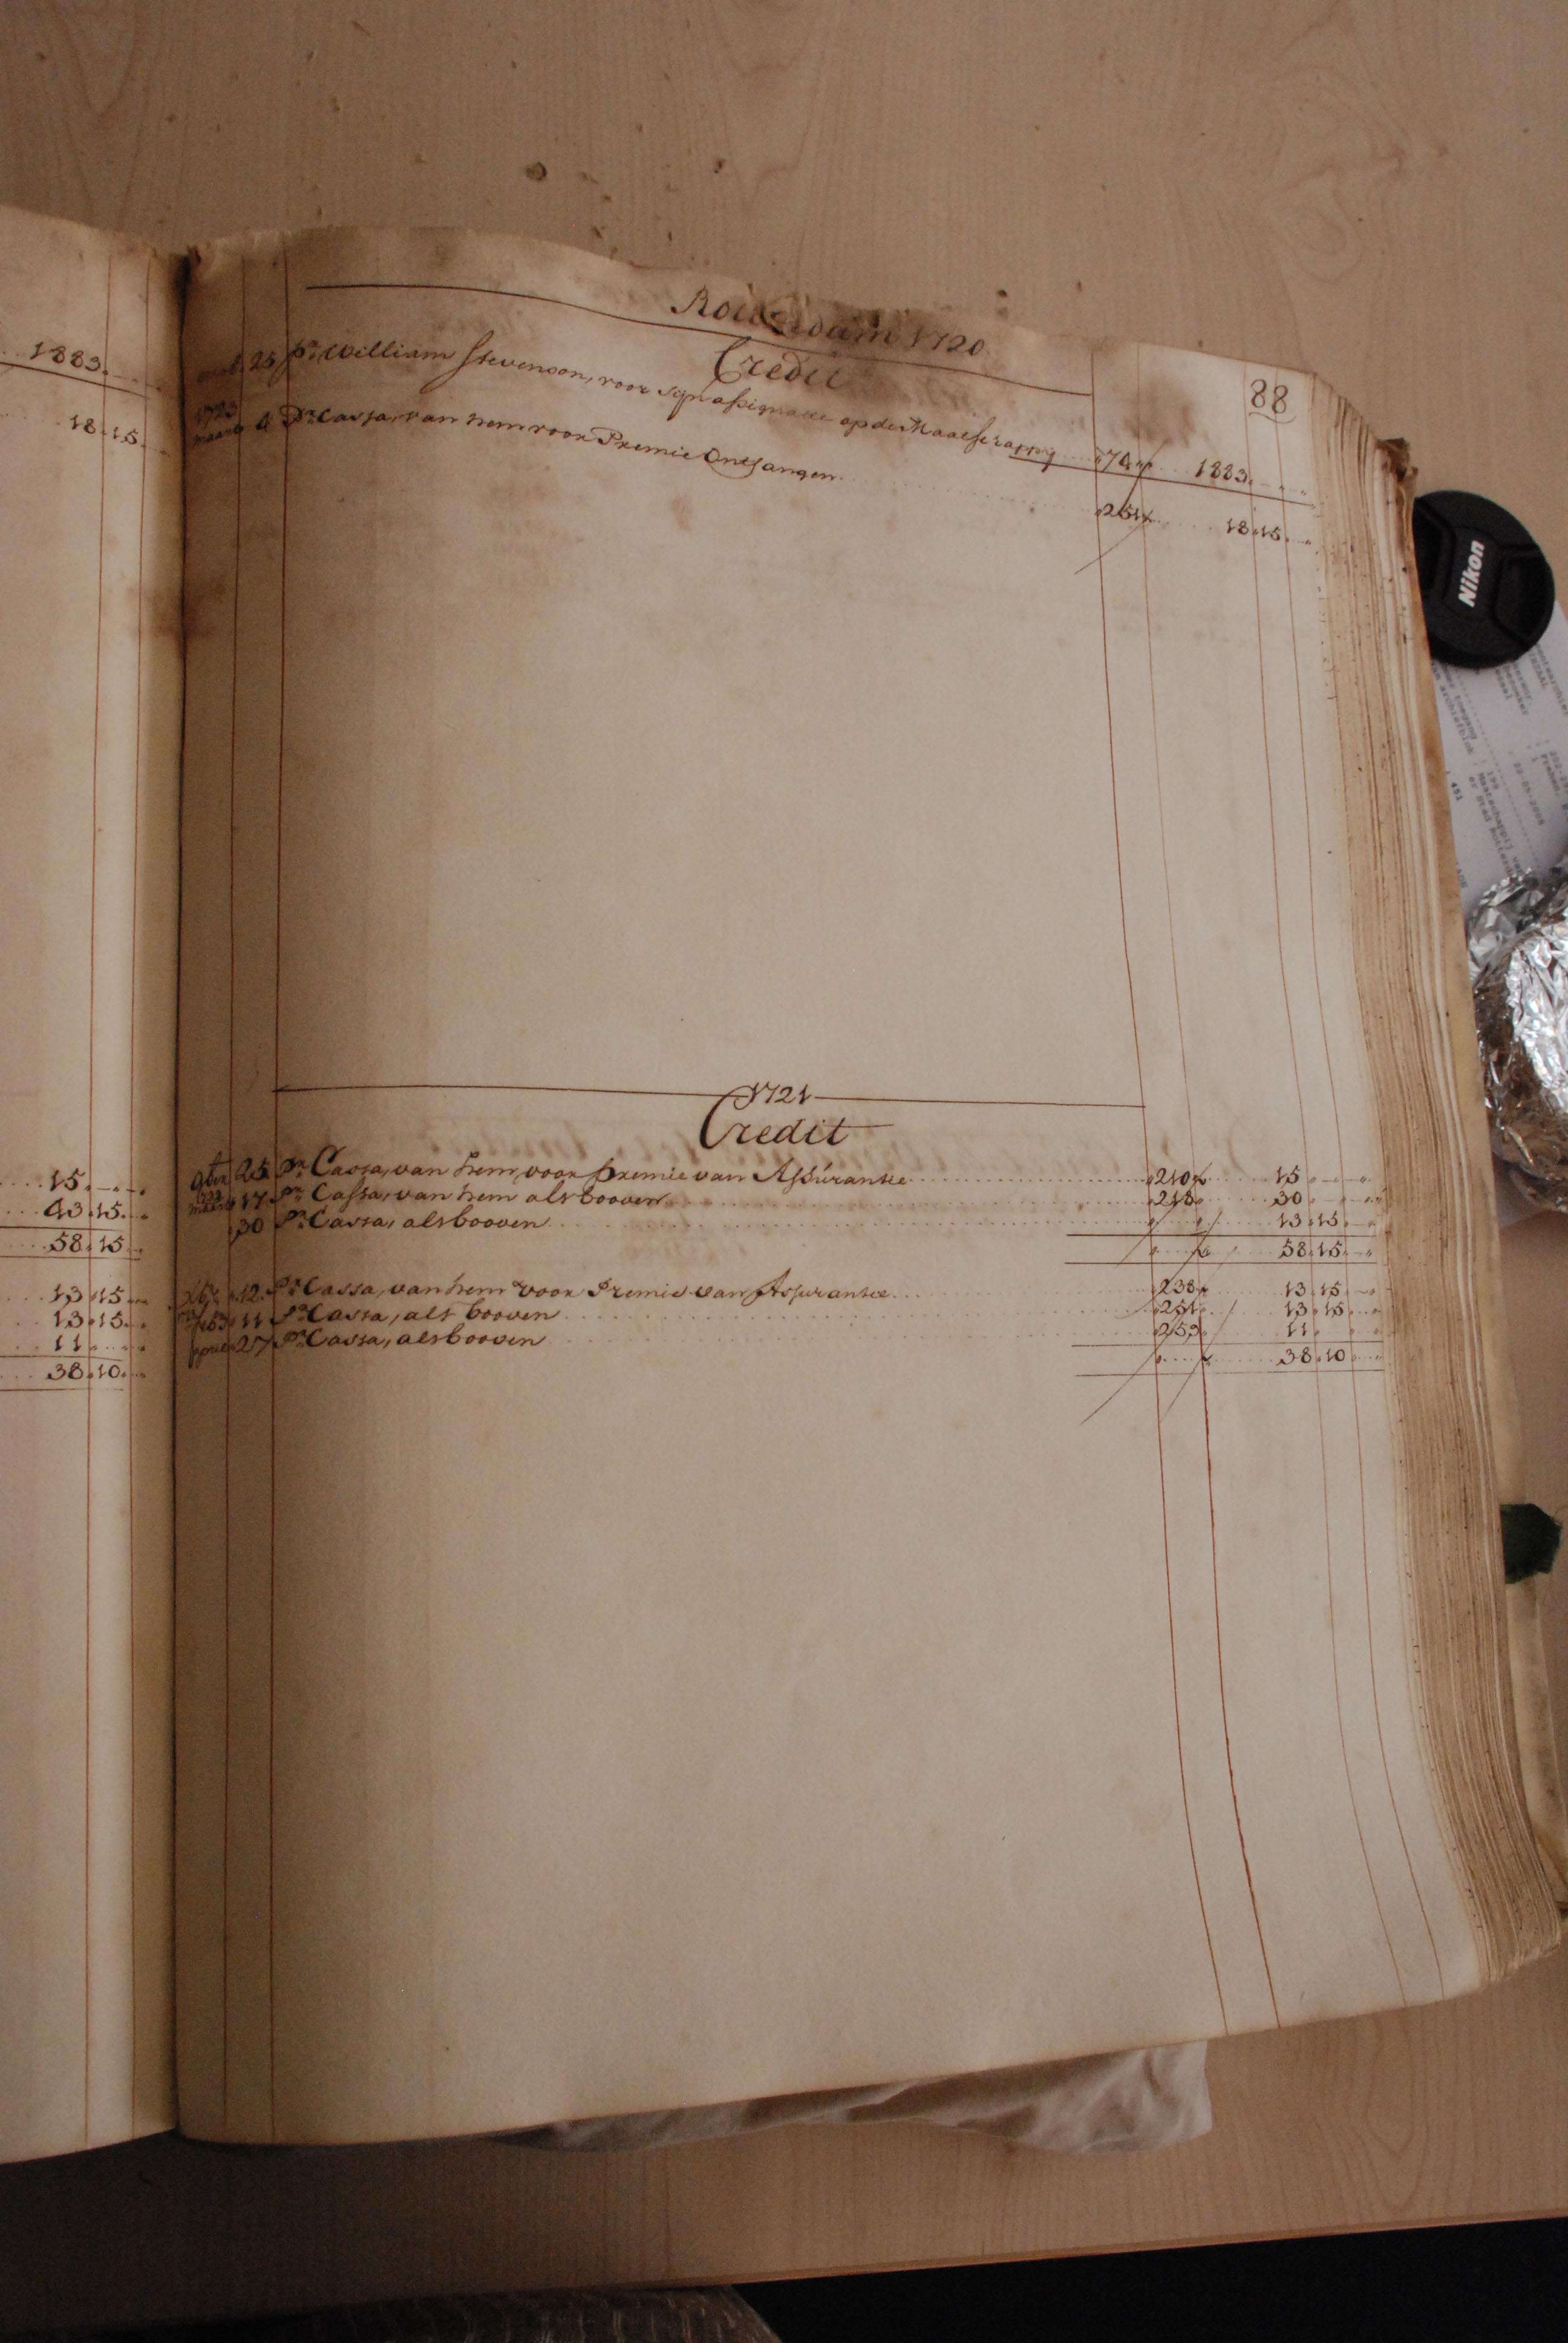 1883.
18.15.
15.
43.15.
58.15.
13.15.
13.15.
11.
38.10.
Rotterdam 1720
88
Credit
25 Pr. William Stevenson, voor zijn assignatie op de Maatschappij 74 1883.
1723 maart 4 Pr. Cassa, van hem voor Premie Ontfangen 251 18.15.
1721
Credit
9ber 25 Pr. Cassa, van hem, voor premie van Assurantie 210 15
maart 17 Pr. Cassa, van hem als booven 218 30
30 Pr. Cassa, als booven 13.15
58.15.
12 Pr. Cassa, van hem voor Premie van Assurantie 238 13.15.
feb 11 Pr. Cassa, als booven 251 13.15
april 27 Pr. Cassa, als booven 253 11
38.10
Nikon